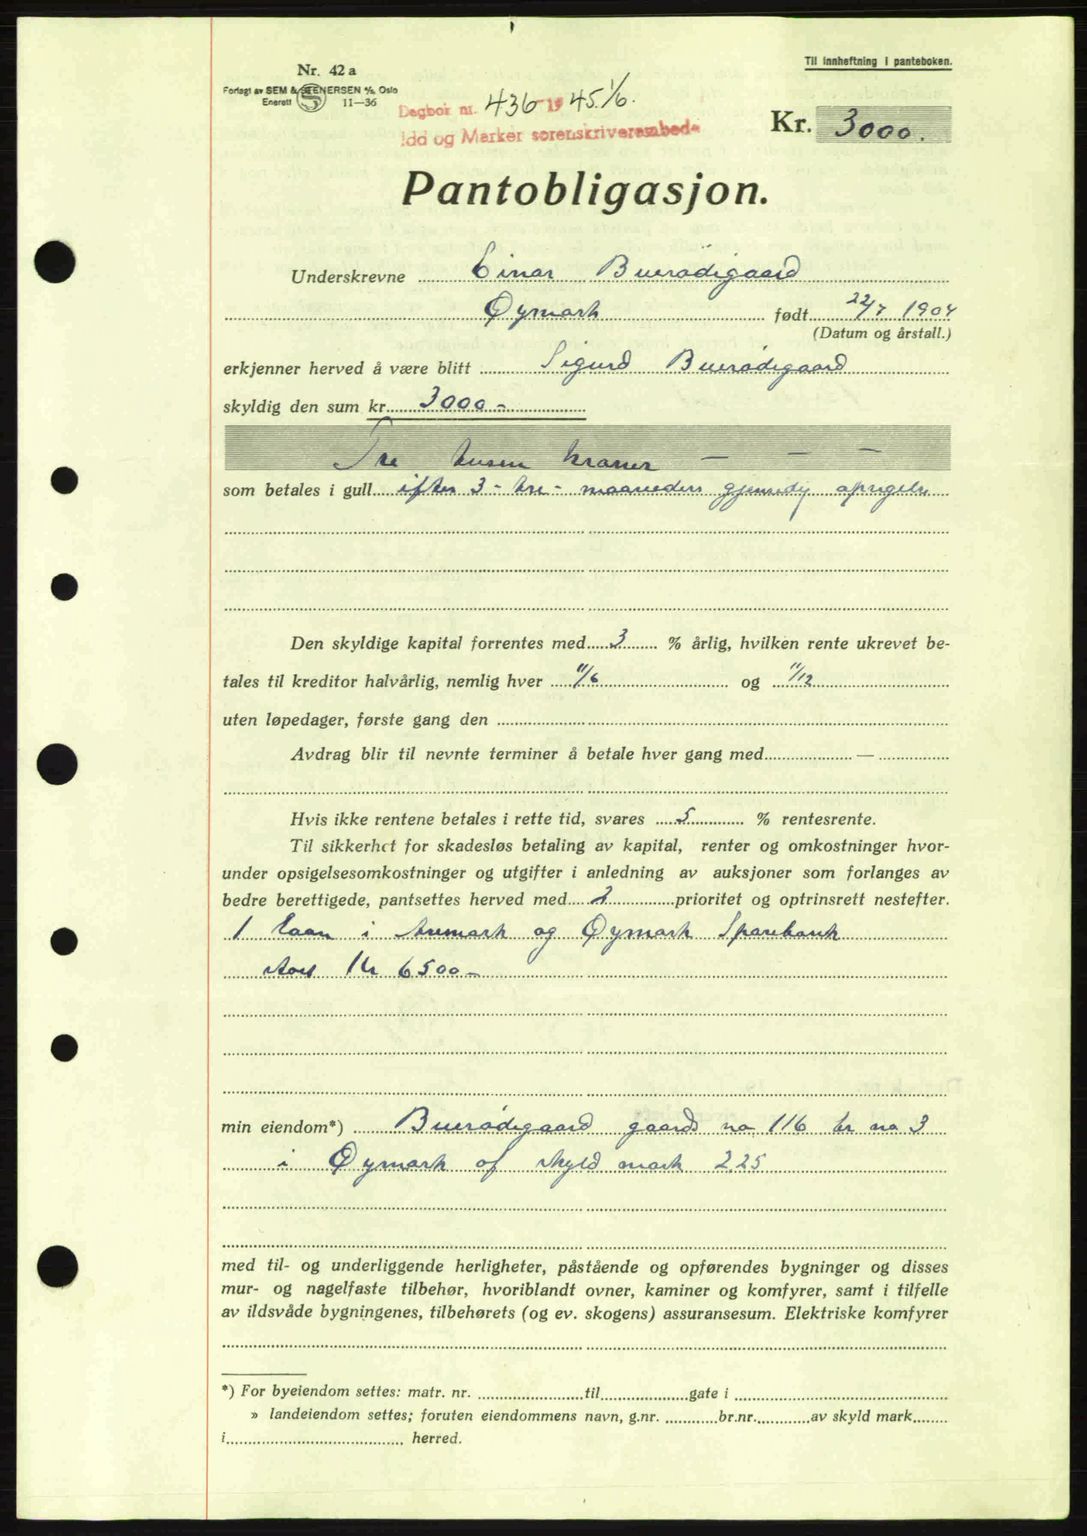 Til innheftning i panteboken.
Nr. 42 a
Forlagt av SEM & STENERSEN A/S, Oslo
Enerett 11—36
Dagbok nr. 436 1945 1/6.
Idd og Marker sorenskriverembede
Kr. 3000.
Pantobligasjon.
Underskrevne Einar Buerødegaard
Øymark født 22/7 1904
(Datum og årstall.)
erkjenner herved å være blitt Sigurd Buerødegaard
skyldig den sum kr. 3000 -
Tre tusen kroner — — —
som betales i gull efter 3 - tre - maaneders gjensidig opsigelse
Den skyldige kapital forrentes med 3 % årlig, hvilken rente ukrevet be-
tales til kreditor halvårlig, nemlig hver 11/6 og 11/12
uten løpedager, første gang den
Avdrag blir til nevnte terminer å betale hver gang med —
Hvis ikke rentene betales i rette tid, svares 5 % rentesrente.
Til sikkerhet for skadesløs betaling av kapital, renter og omkostninger hvor-
under opsigelsesomkostninger og utgifter i anledning av auksjoner som forlanges av
bedre berettigede, pantsettes herved med 2 prioritet og optrinsrett nestefter.
1 laan i Aremark og Øymark Sparebank
stort Kr 6500 -
min eiendom*) Buerødegaard gaards no 116 br no 3
i Øymark af skyld mark 2.25
med til- og underliggende herligheter, påstående og opførendes bygninger og disses
mur- og nagelfaste tilbehør, hvoriblandt ovner, kaminer og komfyrer, samt i tilfelle
av ildsvåde bygningenes, tilbehørets (og ev. skogens) assuransesum. Elektriske komfyrer
*) For byeiendom settes: matr. nr. til gate i
» landeiendom settes; foruten eiendommens navn, g.nr. br.nr. av skyld mark
i herred.